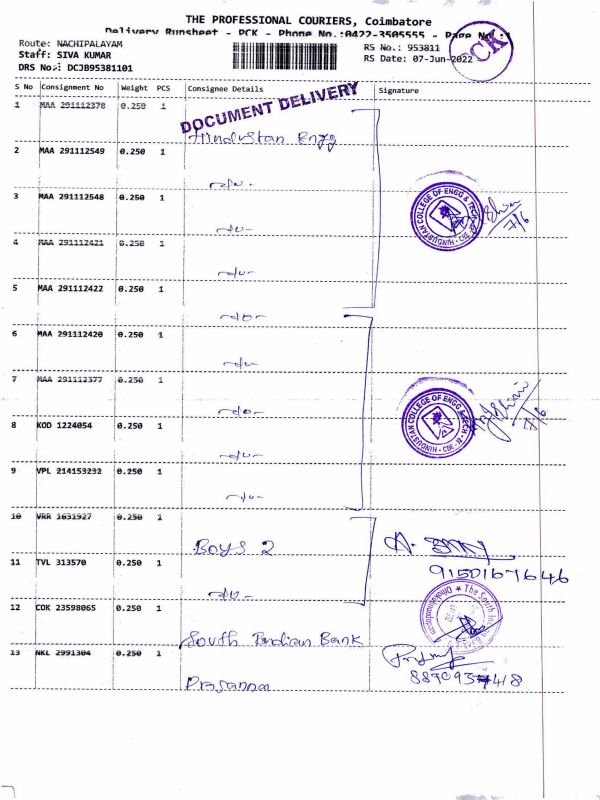 THE PROFESSIONAL COURIERS, Coimbatore
Delivery Runsheet - PCK - Phone No.:0422-3505555 - Page No.:1
Route: NACHIPALAYAM
Staff: SIVA KUMAR
DRS No.: DCJB95381101
RS No.: 953811
RS Date: 07-Jun-2022
PCK
S No Consignment No Weight PCS Consignee Details Signature
1 MAA 291112378 0.250 1
DOCUMENT DELIVERY
Hindustan Engg
2 MAA 291112549 0.250 1
3 MAA 291112548 0.250 1
HINDUSTAN COLLEGE OF ENGG & TECH
7/6
4 MAA 291112421 0.250 1
5 MAA 291112422 0.250 1
6 MAA 291112420 0.250 1
7 MAA 291112377 0.250 1
HINDUSTAN COLLEGE OF ENGG & TECH CBE - 32
7/6
8 KOD 1224054 0.250 1
9 VPL 214153232 0.250 1
10 VRR 1631927 0.250 1
Boys 2
11 TVL 313570 0.250 1
9150167646
12 COK 23598065 0.250 1
The South
South Indian Bank
13 NKL 2991304 0.250 1
Prasanna